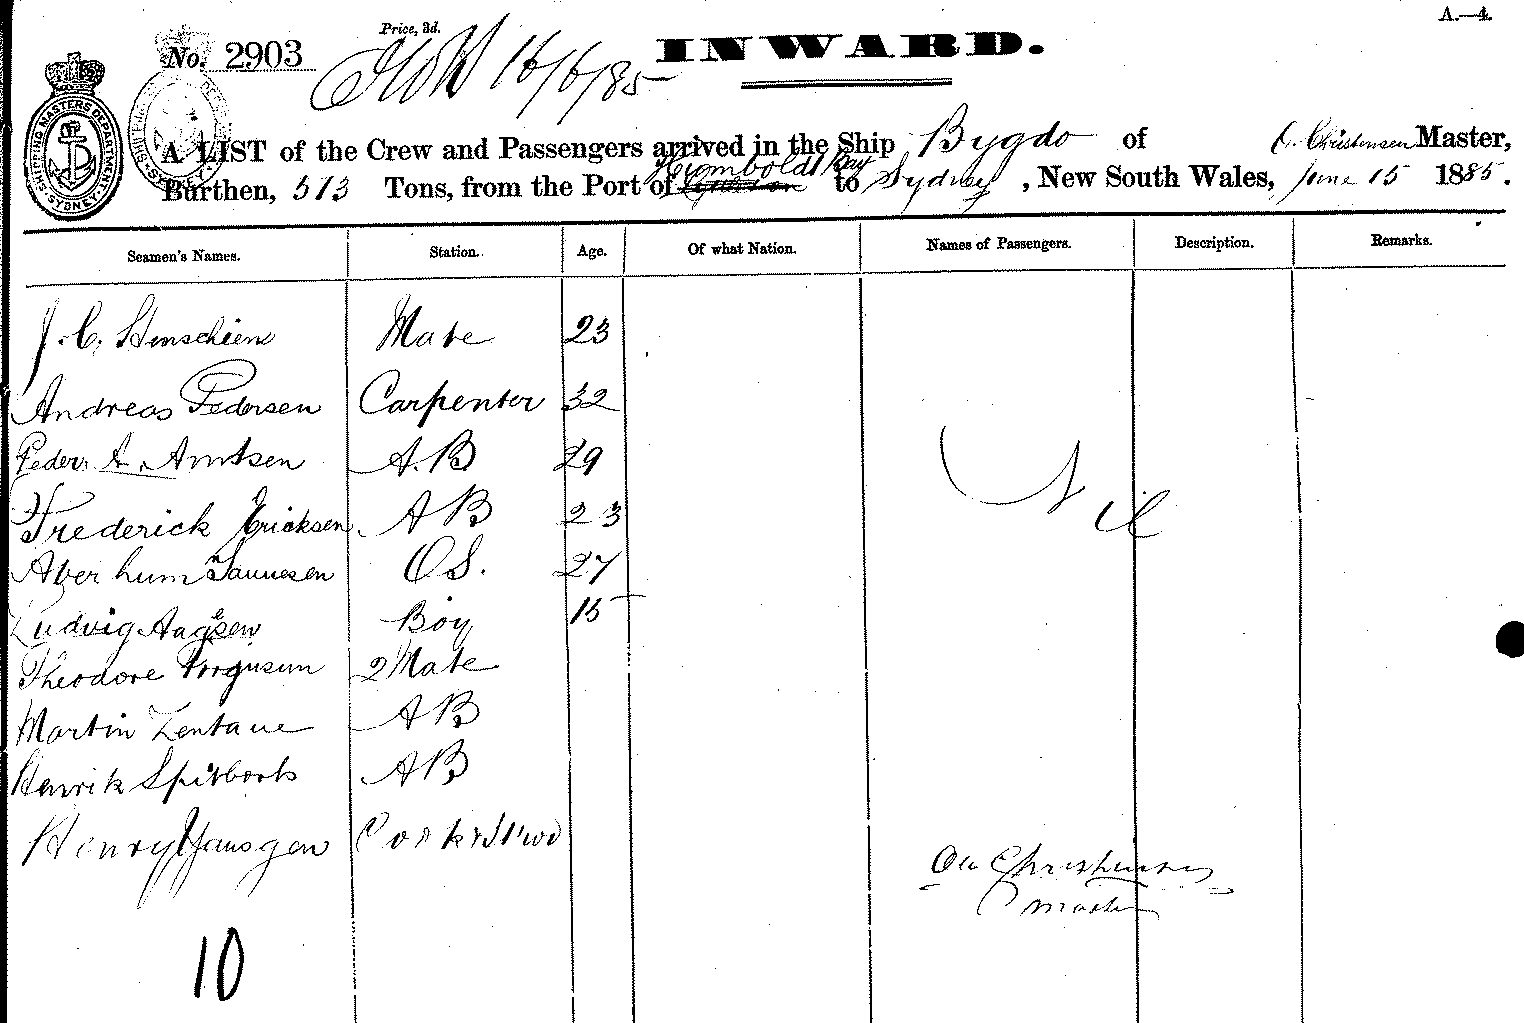 A.—4.
Price, 3d.
No. 2903
16/6/85
INWARD.
SHIPPING MASTERS DEPARTMENT. SYDNEY.
A LIST of the Crew and Passengers arrived in the Ship Bygdo of O. Christensen Master,
Burthen, 513 Tons, from the Port of Humboldt Bay to Sydney, New South Wales, June 15 1885.
Seamen's Names. Station. Age. Of what Nation. Names of Passengers. Description. Remarks.
J. C. Henschien Mate 23
Andreas Pedersen Carpenter 32
Peder A. Arntsen A.B 29
Frederick Ericksen A B 23
Aberhum OS. 27
Ludvig Aagesen Boy 15
Theodore 2 Mate
Martin Zentaue A B
Henrik A B
Henry Cook & St'wd
Nil
Ole Christensen
Master
10